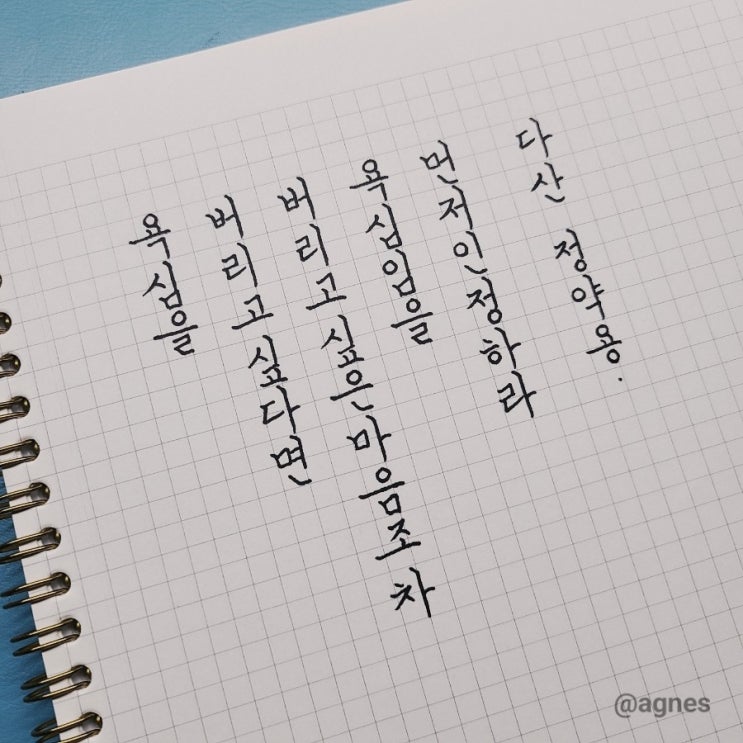 욕심을
버리고 싶다면
버리고 싶은 마음조차
욕심임을
먼저 인정하라
다산 정약용.
@agnes